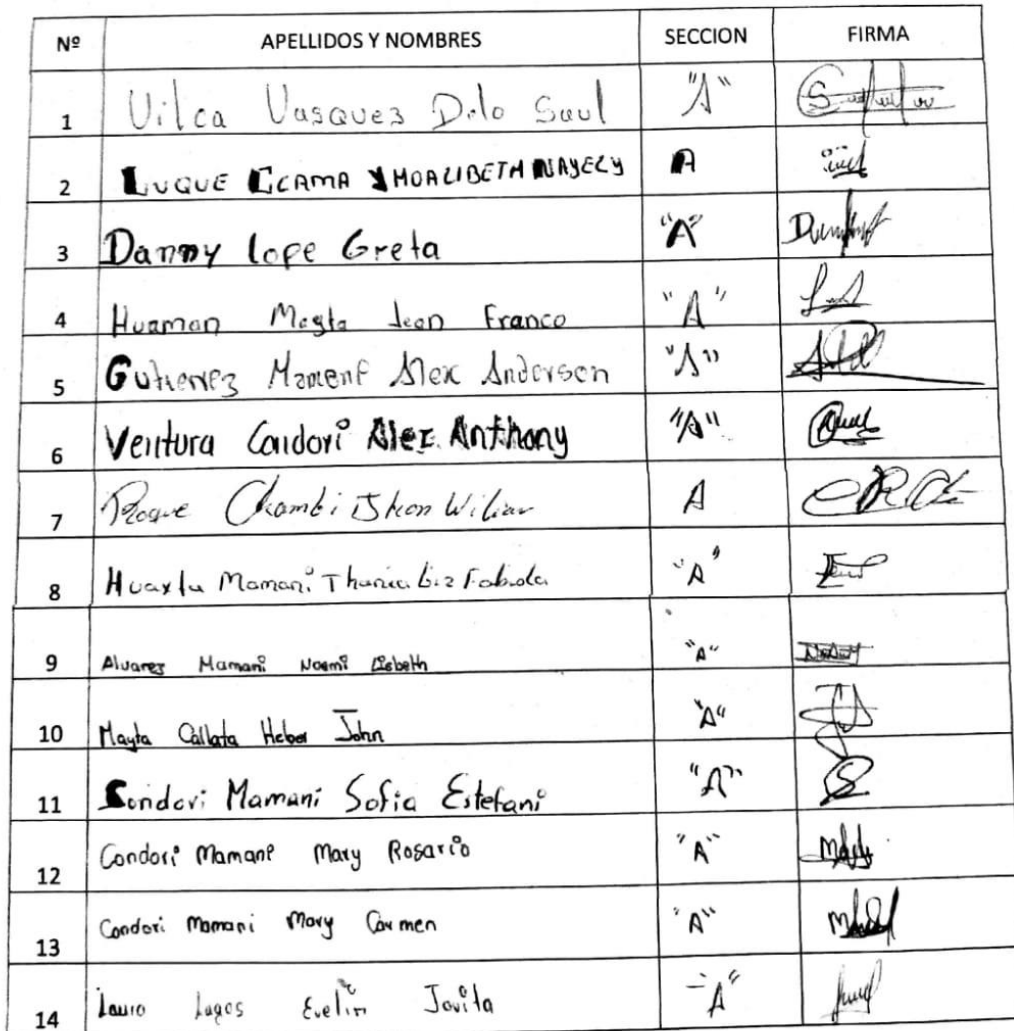 Nº APELLIDOS Y NOMBRES SECCION FIRMA
1 Vilca Vasquez Dilo Saul "A"
2 LUQUE CCAMA YHOALIBETH NAYELY A
3 Danny lope Greta "A"
4 Huaman Mayta Jean Franco "A"
5 Gutierrez Mamani Alex Anderson "A"
6 Ventura Condori Alex Anthony "A"
7 Roque Chambi Jhon Wiliar A
8 Mamani Thania Liz Fabiola "A"
9 Alvarez Mamani Noemi Lisbeth "A"
10 Mayta Callata Heber John "A"
11 Condori Mamani Sofia Estefani "A"
12 Condori Mamani Mary Rosario "A"
13 Condori Mamani Mary Carmen "A"
14 Lauro Lagos Evelin Jovita "A"